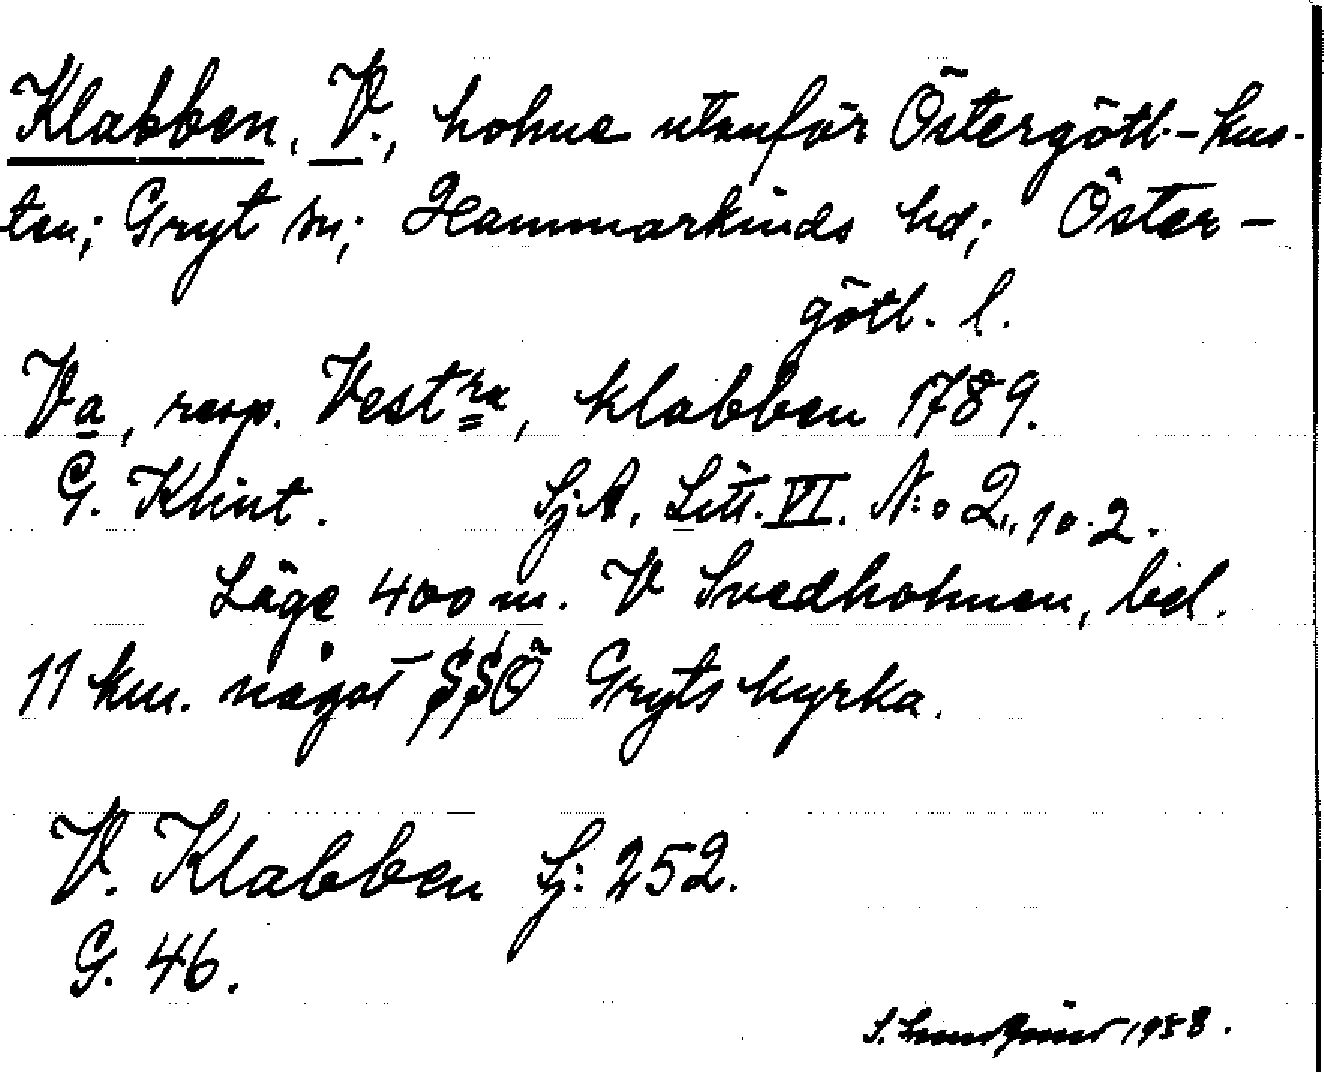 Klabben, V., holme utanför Östergötl.-kus-
ten; Gryt sn; Hammarkinds hd; Öster-
götl. l.
Va, resp. Vestra, klabben 1789.
G. Klint. Sj.A. Litt. VI. N:o 2., 10.2.
Läge 400 m. V Svedholmen, bel.
11 km. något SSÖ Gryts kyrka.
V. Klabben Sj: 252.
G. 46.
S. 1958.